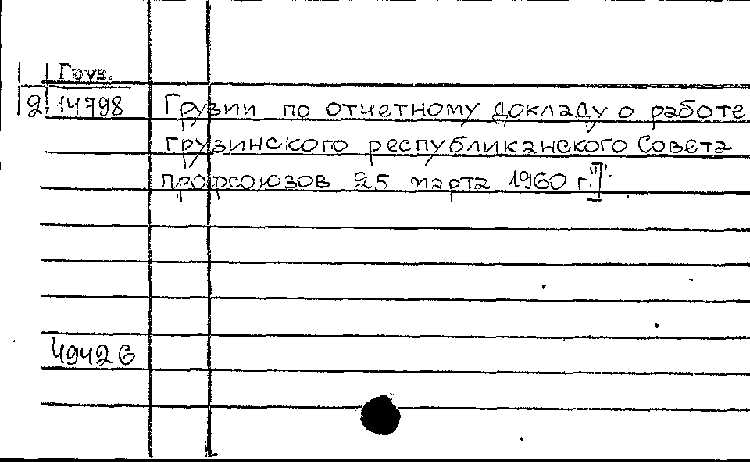 Груз.
2 14798 Грузии по отчетному докладу о работе
грузинского республиканского Совета
профсоюзов 25 марта 1960 г."].
4942б